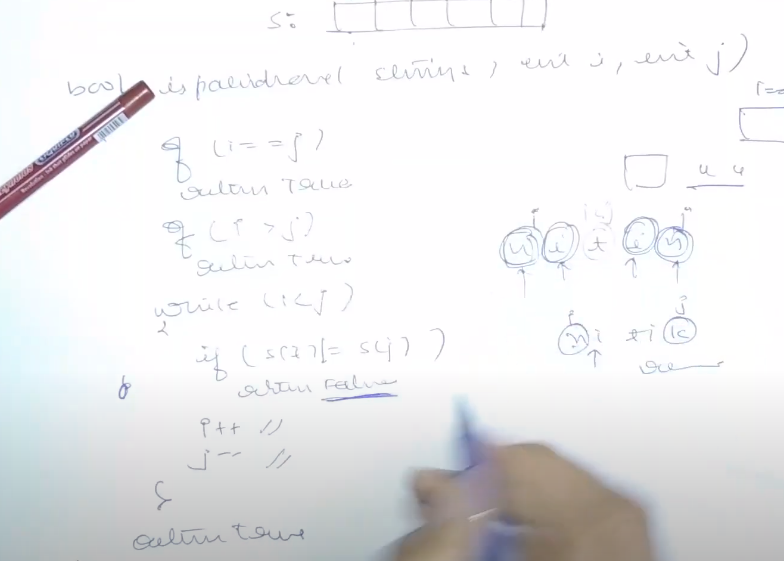 s:
bool ispalindrome( string s, int i, int j)
if (i==j)
return True
if (i>j)
return True
while (i<j)
{
if (s[i] != s[j])
return False
i++ //
j-- //
}
return True
i j
n i t i n
i j
n i t i k